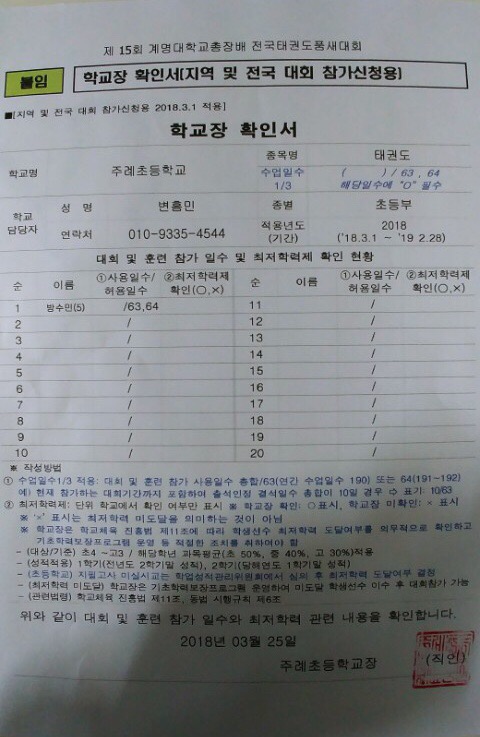 제 15회 계명대학교총장배 전국태권도품새대회
붙임
학교장 확인서(지역 및 전국 대회 참가신청용)
■[지역 및 전국 대회 참가신청용 2018.3.1 적용]
학교장 확인서
학교명 주례초등학교 종목명 태권도
수업일수 1/3 ( ) / 63 , 64
해당일수에 "O" 필수
학교 담당자 성 명 변흠민 종별 초등부
연락처 010-9335-4544 적용년도 (기간) 2018
('18.3.1 ~ '19 2.28)
대회 및 훈련 참가 일수 및 최저학력제 확인 현황
순 이름 ①사용일수/허용일수 ②최저학력제 확인(○,×) 순 이름 ①사용일수/허용일수 ②최저학력제 확인(○,×)
1 방수민(5) /63,64 11 /
2 / 12 /
3 / 13 /
4 / 14 /
5 / 15 /
6 / 16 /
7 / 17 /
8 / 18 /
9 / 19 /
10 / 20 /
※ 작성방법
① 수업일수1/3 적용: 대회 및 훈련 참가 사용일수 총합/63(연간 수업일수 190) 또는 64(191~192)
예) 현재 참가하는 대회기간까지 포함하여 출석인정 결석일수 총합이 10일 경우 ⇨ 표기: 10/63
② 최저학력제: 단위 학교에서 확인 여부만 표시 ※ 학교장 확인: ○표시, 학교장 미확인: × 표시
※ '×' 표시는 최저학력 미도달을 의미하는 것이 아님
※ 학교장은 학교체육 진흥법 제11조에 따라 학생선수 최저학력 도달여부를 의무적으로 확인하고
기초학력보장프로그램 운영 등 적절한 조치를 취하여야 함
- (대상/기준) 초4 ~고3 / 해당학년 과목평균(초 50%, 중 40%, 고 30%)적용
- (성적적용) 1학기(전년도 2학기말 성적), 2학기(당해연도 1학기말 성적)
- (초등학교) 지필고사 미실시교는 학업성적관리위원회에서 심의 후 최저학력 도달여부 결정
- (최저학력 미도달) 학교장은 기초학력보장프로그램 운영하여 미도달 학생선수 이수 후 대회참가 가능
- (관련법령) 학교체육 진흥법 제11조, 동법 시행규칙 제6조
위와 같이 대회 및 훈련 참가 일수와 최저학력 관련 내용을 확인합니다.
2018년 03월 25일
주례초등학교장 (직인)